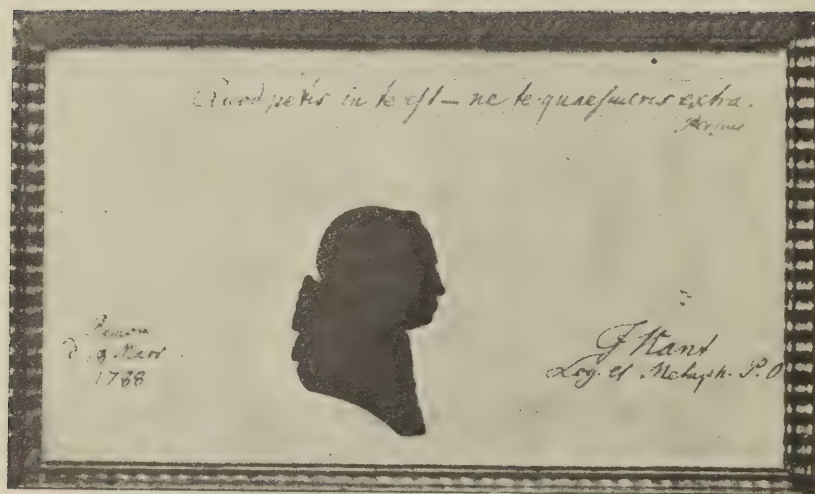 Quod petis in te est — ne te quaesiveris extra.
Persius
d. 9 Mart
1788
J Kant
Log. et Metaph. P. O